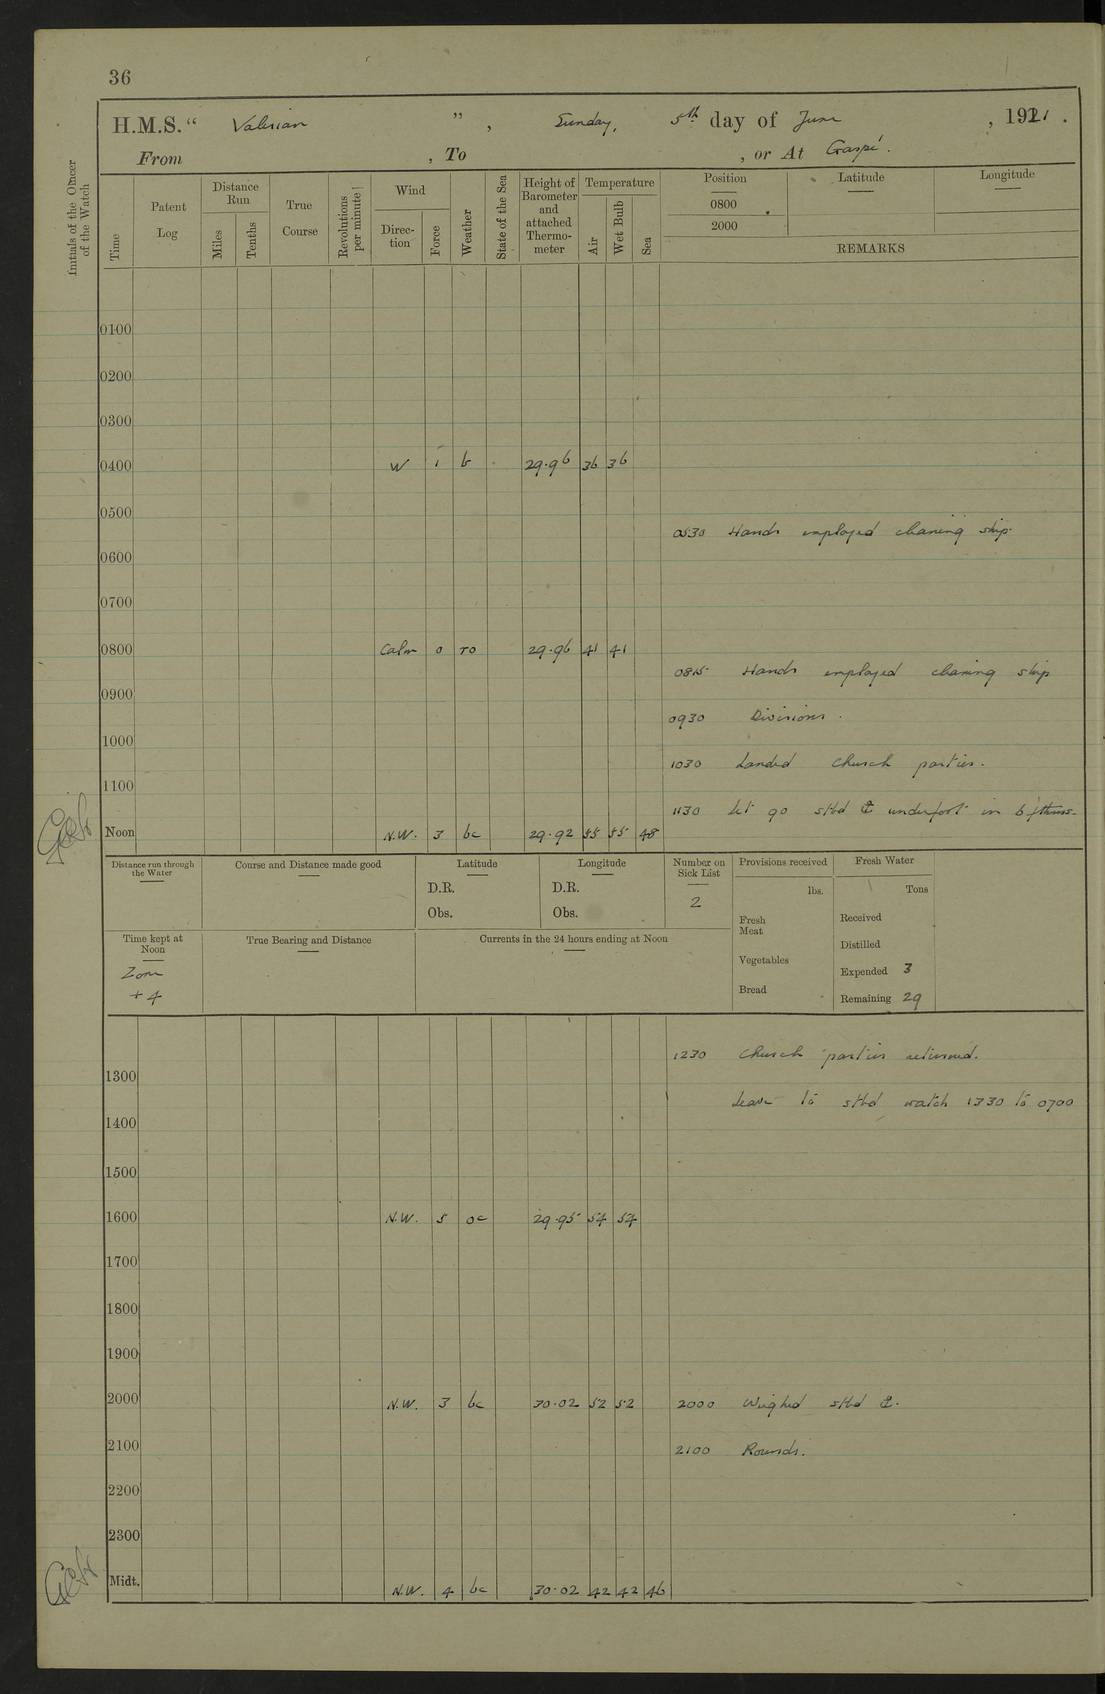 36
H.M.S. " Valerian " , Sunday, 5th day of June , 1921 .
From , To , or At Gaspé.
Initials of the Officer of the Watch
Time
Patent Log
Distance Run
Miles
Tenths
True Course
Revolutions per minute
Wind
Direction
Force
Weather
State of the Sea
Height of Barometer and attached Thermometer
Temperature
Air
Wet Bulb
Sea
Position Latitude Longitude
0800
2000
REMARKS
0100
0200
0300
0400 W 1 b 29.96 36 36
0500
0530 Hands employed cleaning ship.
0600
0700
0800 Calm 0 ro 29.96 41 41
0815 Hands employed cleaning ship
0900
0930 Divisions.
1000
1030 Landed church parties.
1100
1130 Let go stbd ⚓ underfoot in 6 fthms.
Noon N.W. 3 bc 29.92 55 55 48
Distance run through the Water
Course and Distance made good
Latitude
D.R.
Obs.
Longitude
D.R.
Obs.
Number on Sick List
2
Provisions received
lbs.
Fresh Meat
Vegetables
Bread
Fresh Water
Tons
Received
Distilled
Expended 3
Remaining 29
Time kept at Noon
Zone
+4
True Bearing and Distance
Currents in the 24 hours ending at Noon
1230 Church parties returned.
1300
Leave to stbd watch 1330 to 0700
1400
1500
1600 N.W. 5 oc 29.95 54 54
1700
1800
1900
2000 N.W. 3 bc 30.02 52 52 2000 Weighed stbd ⚓.
2100 2100 Rounds.
2200
2300
Midt. N.W. 4 bc 30.02 42 42 46